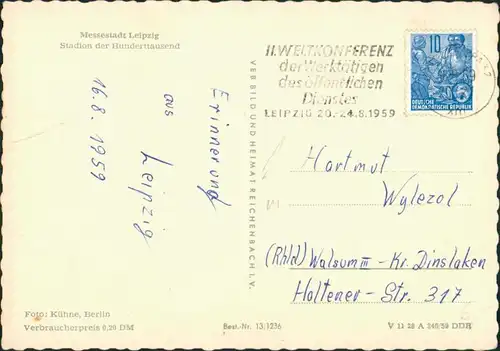 Messestadt Leipzig
Stadion der Hunderttausend
Erinnerung
aus
Leipzig
16.8.1959
Foto: Kühne, Berlin
Verbraucherpreis 0,20 DM
VEB BILD UND HEIMAT REICHENBACH I. V.
Best.-Nr. 13/1236
II. WELTKONFERENZ
der Werktätigen
des öffentlichen
Dienstes
LEIPZIG 20.-24.8.1959
10
DEUTSCHE
DEMOKRATISCHE REPUBLIK
Hartmut
Wylezol
(Rhld) Walsum III - Kr. Dinslaken
Haltener - Str. 317
V 11 28 A 248/59 DDR